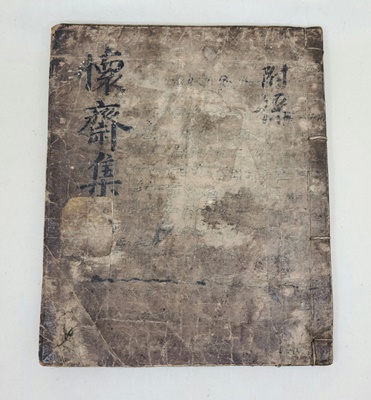 懷齋集
附錄